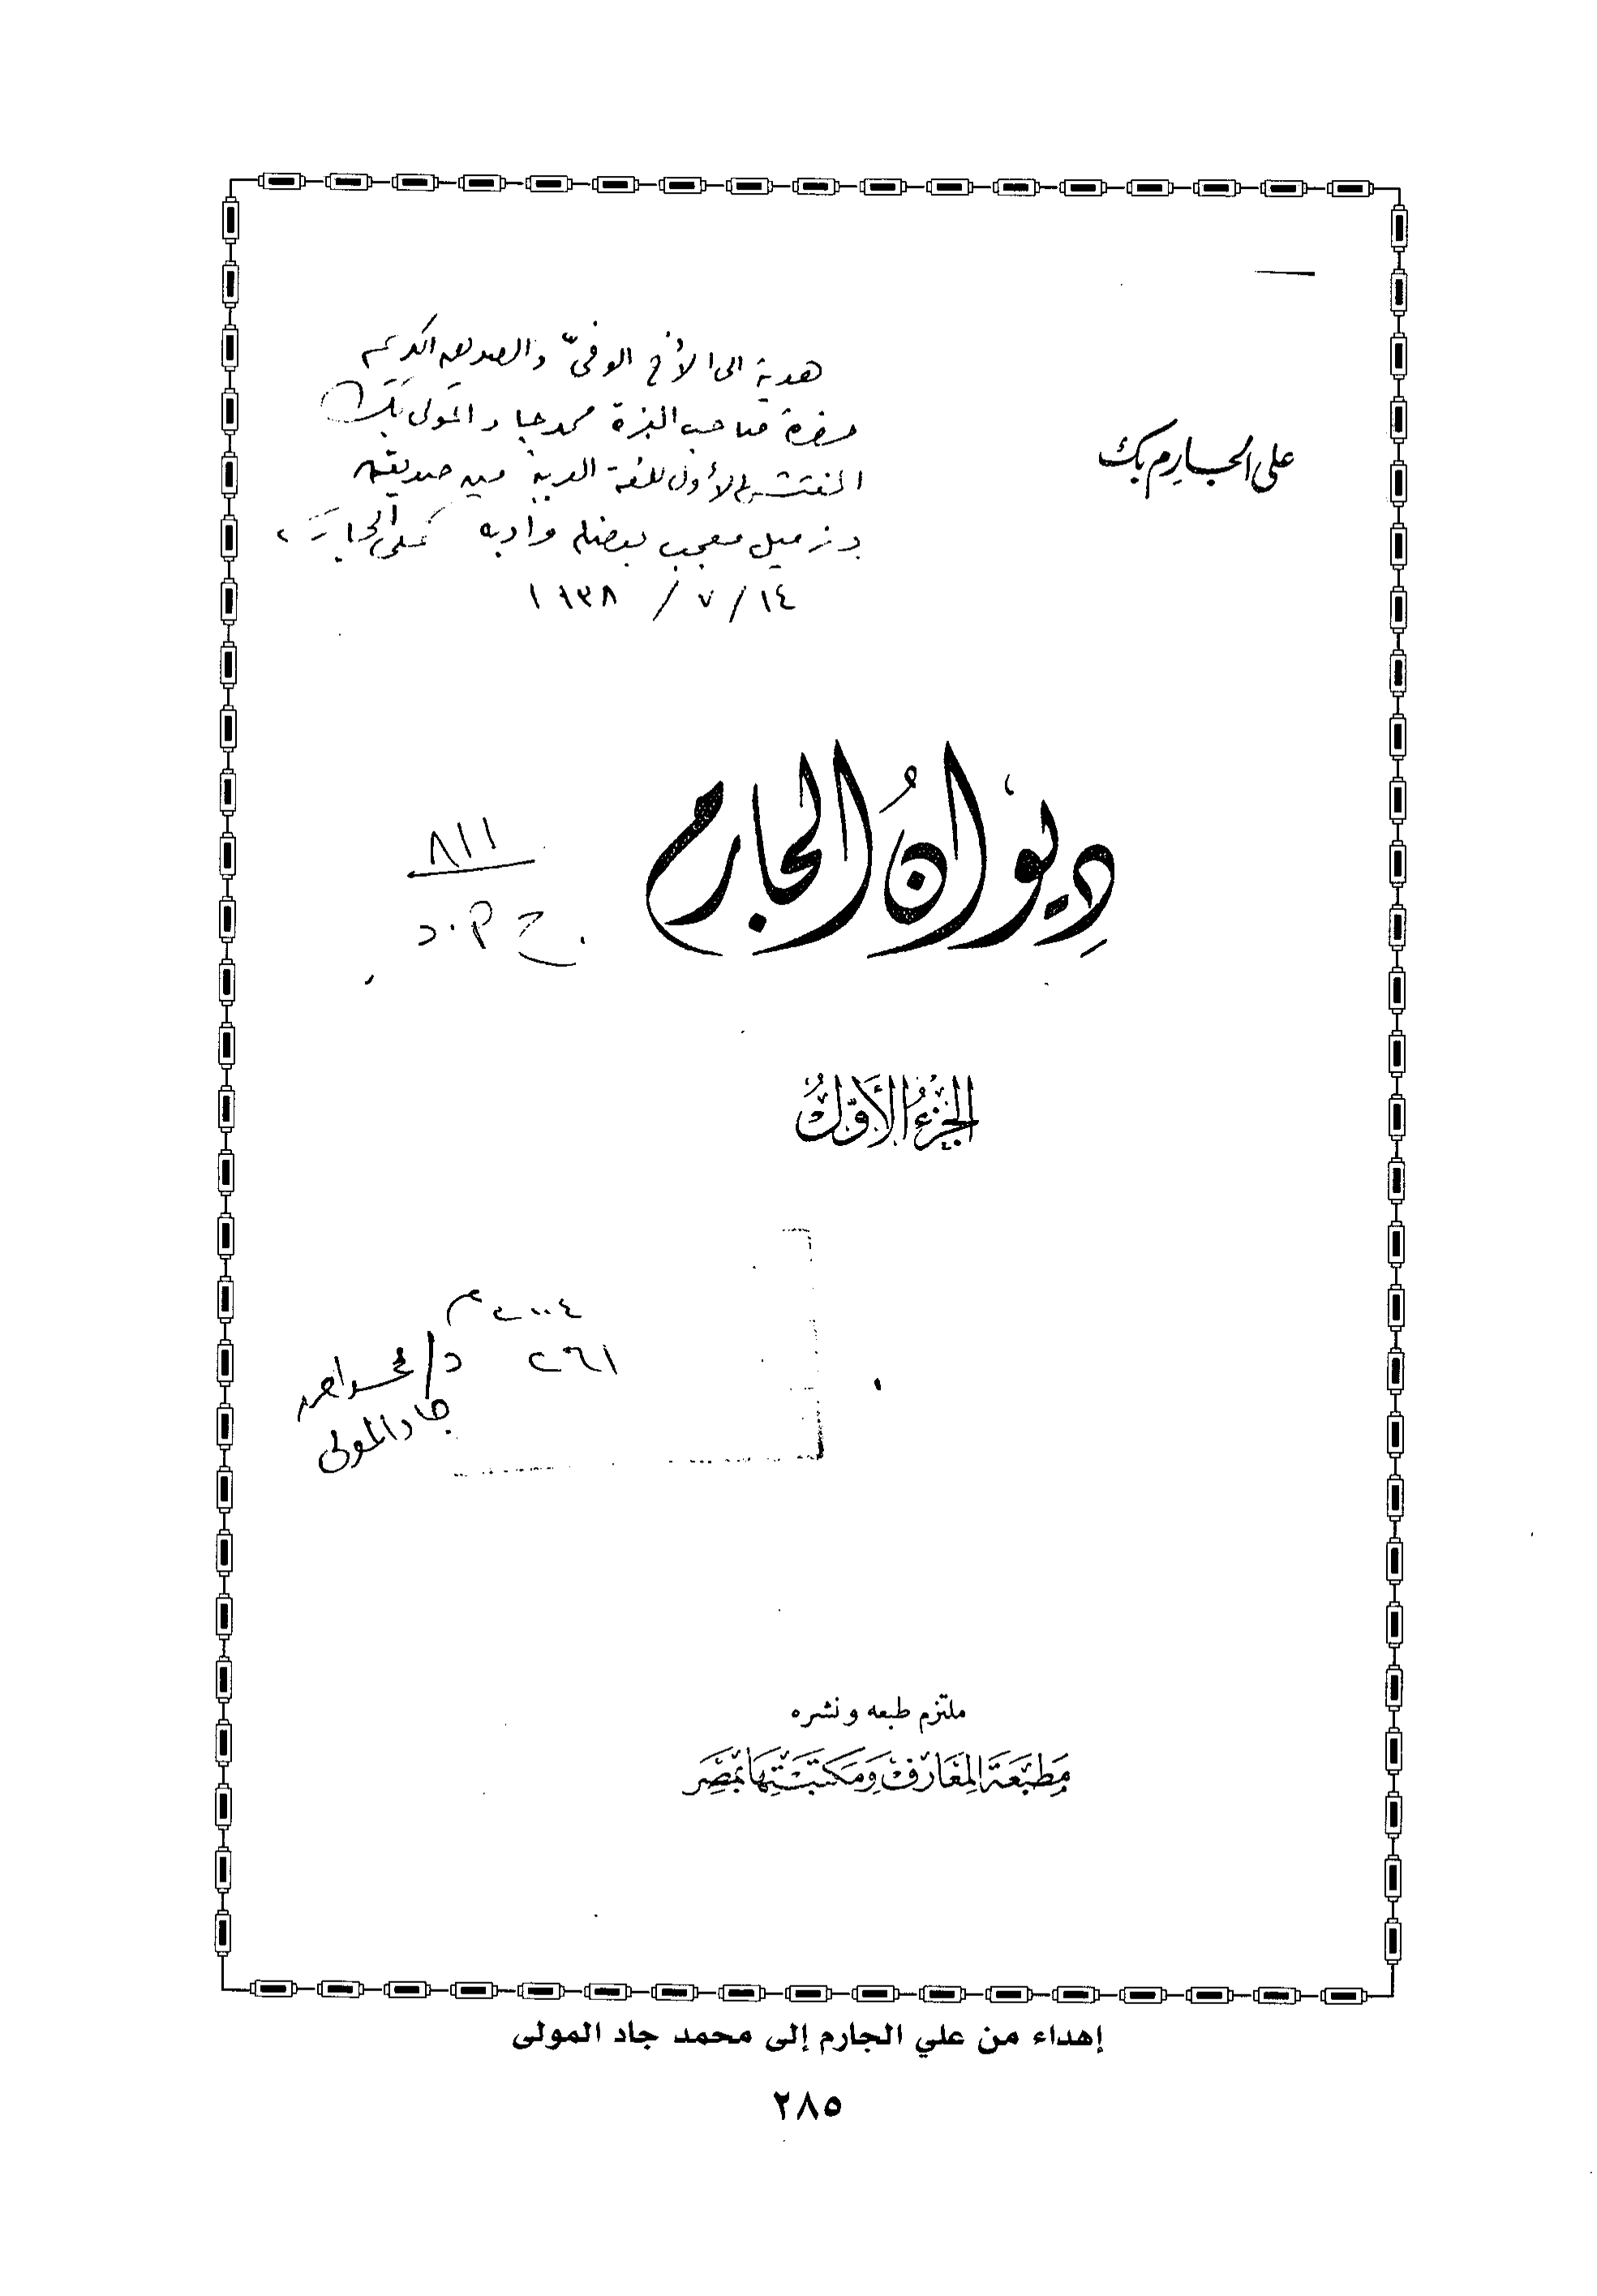 هدية الى الأخ الوفىّ والصديق الكريم
حضرة صاحب العزة محمد جاد المولى بك
المفتش الأول للغة العربية من صديقه
وزميل معجب بفضله وأدبه على الجارم
١٤/ ٧ / ١٩٣٨
على الجارم بك
ديوان الجارم
٨١١
ج ٣٠ د
الجزءُ الأَوّلُ
٢٠٠٤ م
٢٦١ د/ محمد احمد
جاد المولى
ملتزم طبعه ونشره
مَطبَعَة المَعَارف وَمَكتبَتهَا بمصر
إهداء من علي الجارم إلى محمد جاد المولى
٢٨٥